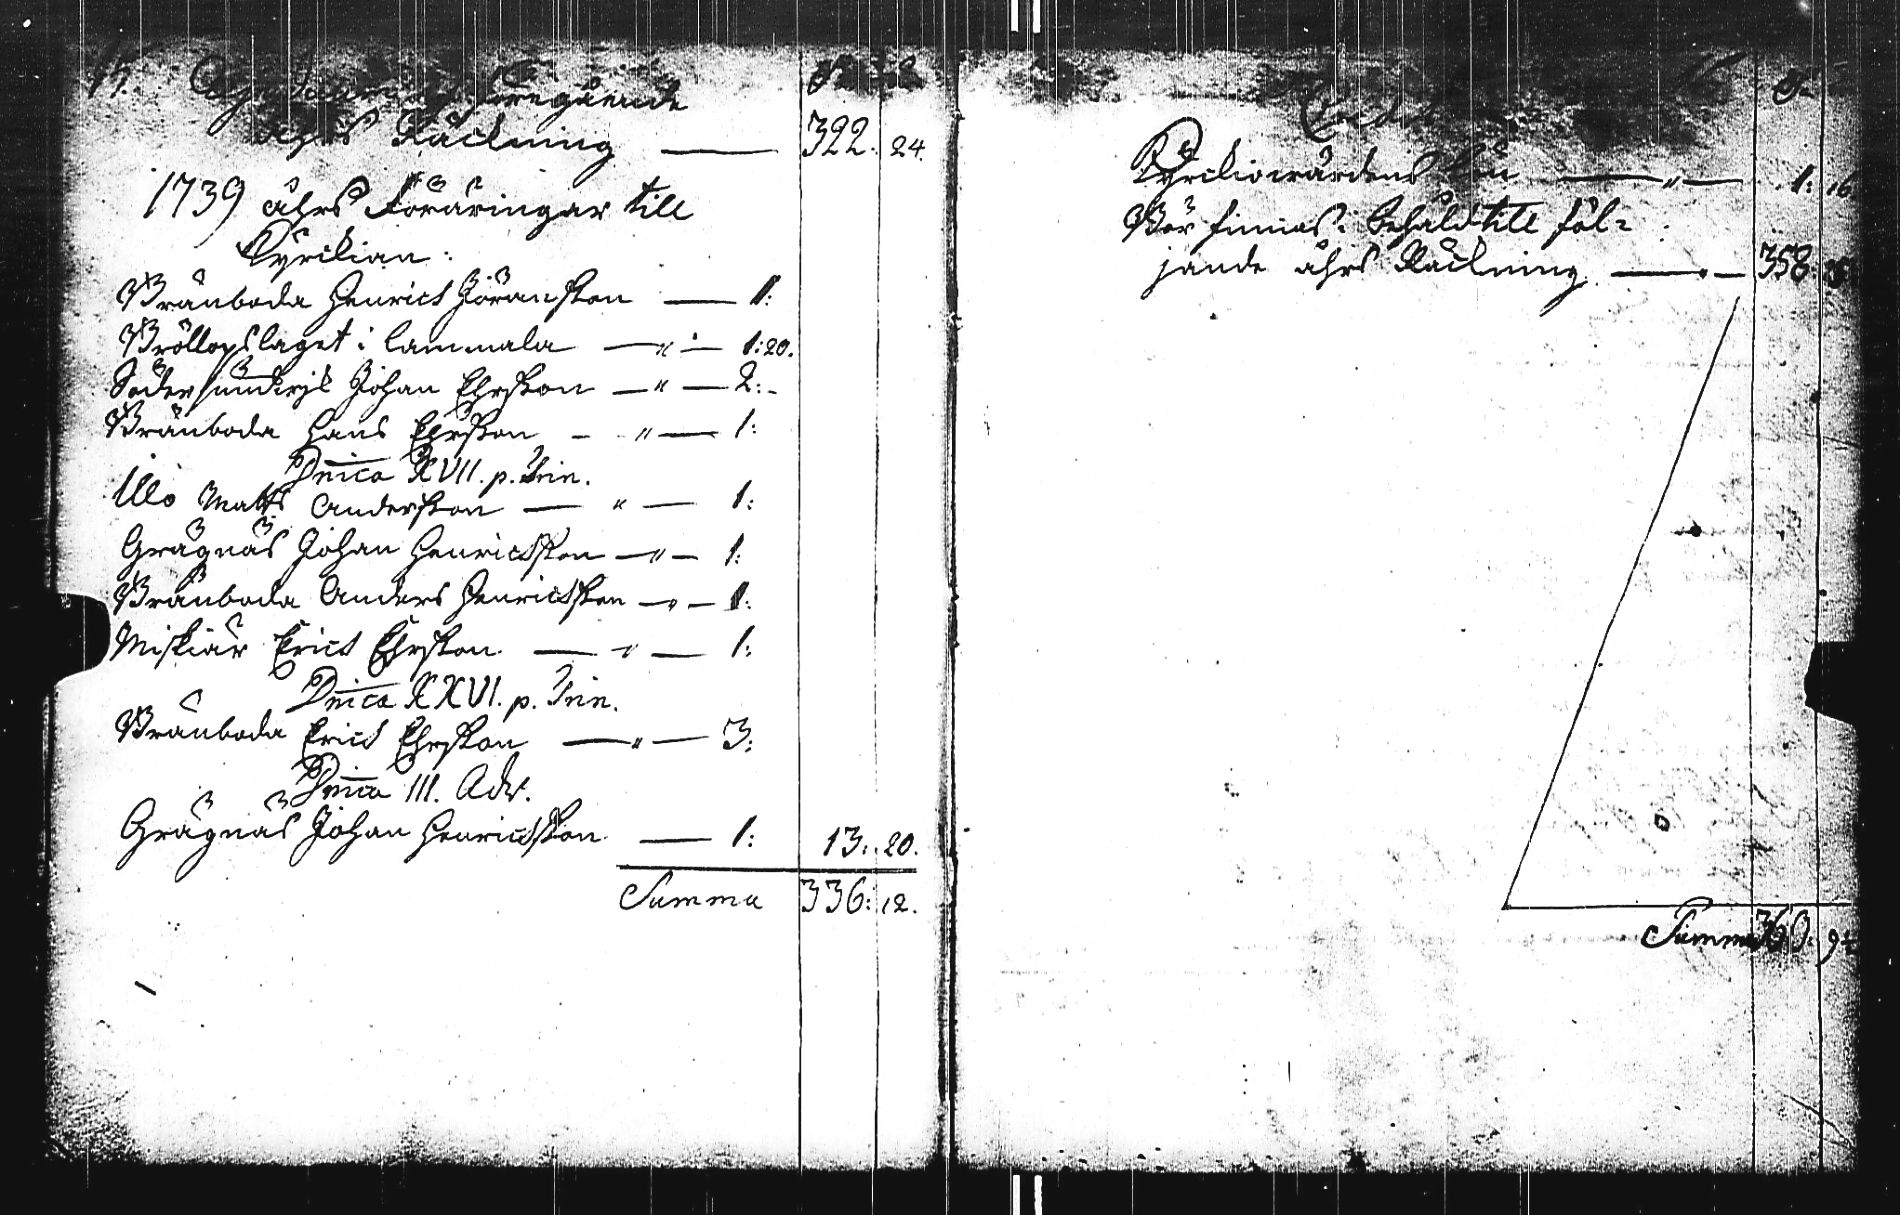 15.
föregående
åhrs Räckning — 322. 24.
1739 åhrs Föräringar till
Kyrckian:
Bränboda Henrich Jöransson — 1:
Bröllopslaget i Lammala — " — 1:20.
Södersundvyk Johan Ehrsson — " — 2:-
Bränboda Hans Ehrsson — " — 1:
Dnica XVII. p. Trin.
Ulö Matts Andersson — " — 1:
Grägnäs Johan Henrichsson — " — 1:
Bränboda Anders Henrichsson — " — 1:
Miskiär Erich Ehrsson — " — 1:
Dnica XXVI. p. Trin.
Bränboda Erich Ehrsson — " — 3:
Dnica III. Adv.
Grägnäs Johan Henrichsson — 1: 13: 20.
Summa 336: 12.
Credit
Kyrckiowärdens lön — " — 1: 16
Bör finnas i behåld till föl-
jande åhrs Räckning — " — 358
Summa 360: